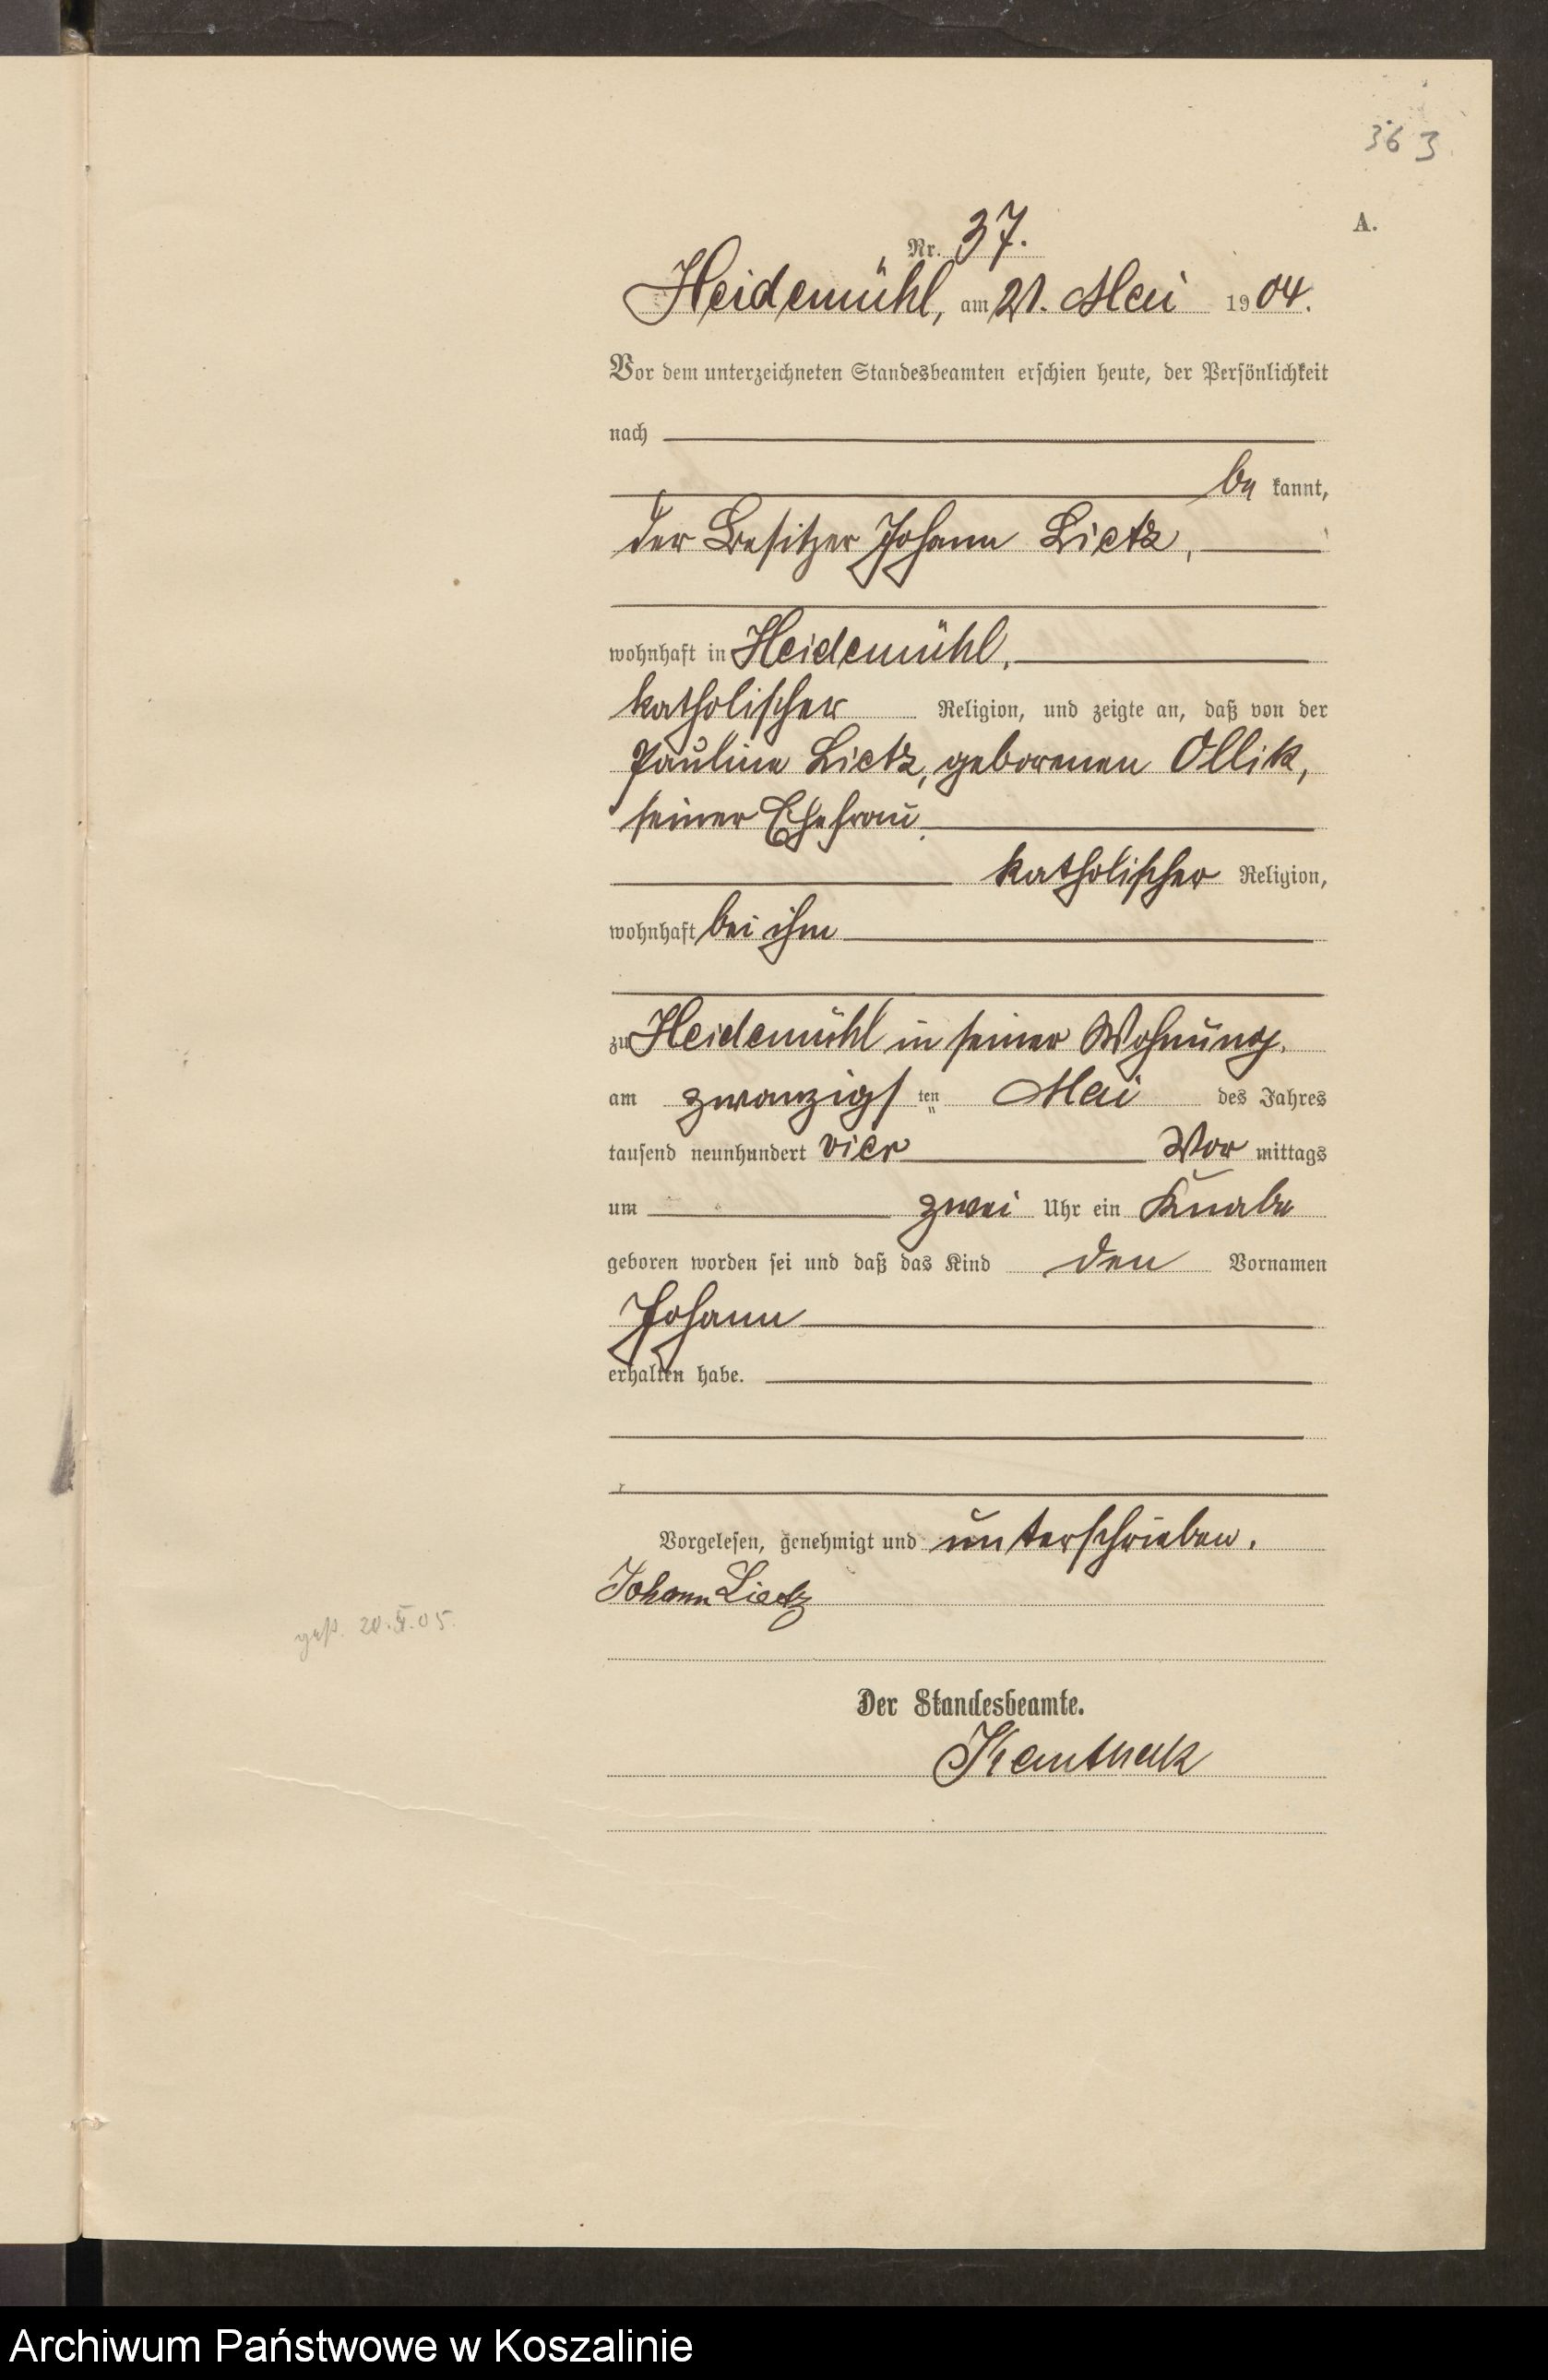 363
A.
Nr. 37.
Heidemühl, am 21. Mai 1904.
Vor dem unterzeichneten Standesbeamten erschien heute, der Persönlichkeit
nach
be kannt,
der Besitzer Johann Lietz,
wohnhaft in Heidemühl,
katholischer Religion, und zeigte an, daß von der
Pauline Lietz, geborenen Ollik,
seiner Ehefrau
katholischer Religion,
wohnhaft bei ihm
zu Heidemühl in seiner Wohnung,
am zwanzigsten Mai des Jahres
tausend neunhundert vier Vor mittags
um zwei Uhr ein Knabe
geboren worden sei und daß das Kind den Vornamen
Johann
erhalten habe.
Vorgelesen, genehmigt und unterschrieben.
Johann Lietz
20. 05.
Der Standesbeamte.
Archiwum Państwowe w Koszalinie